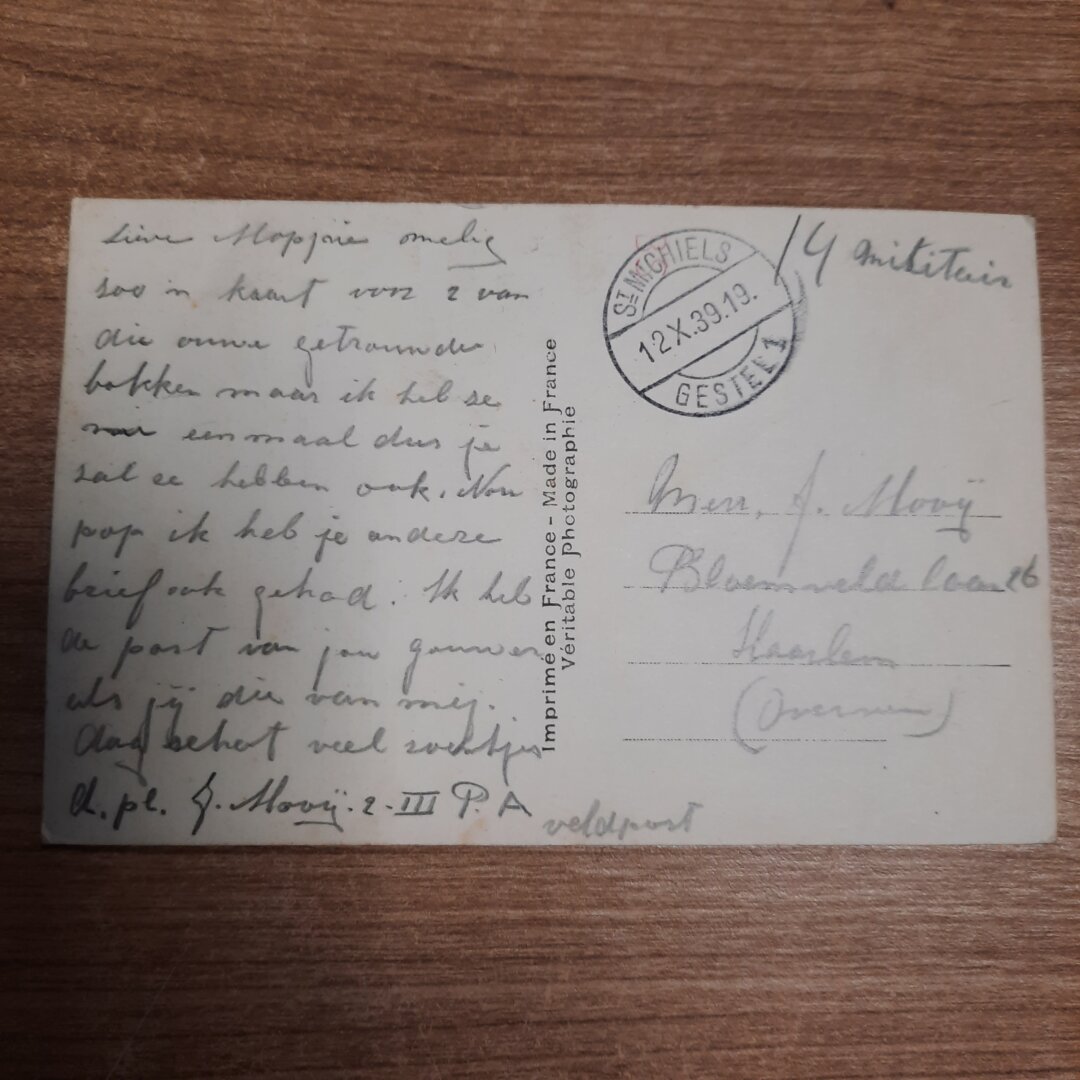 Lieve Moppie omelig
soo n kaart voor 2 van
die ouwe getrouwde
bokken maar ik heb se
eenmaal dus je
sal se hebben ook. Nou
pop ik heb je andere
brief ook gehad. Ik heb
de post van jou gouwer
als jij die van mij.
Dag schat veel soentjes
d. pl. J. Mooij. 2-III P. A
veldpost
Imprimé en France - Made in France
Véritable Photographie
ST MICHIELS
12 X.39.19.
GESTEL 1
militair
Mevr. J. Mooij
Bloemveldlaan 26
Haarlem
(Overveen)